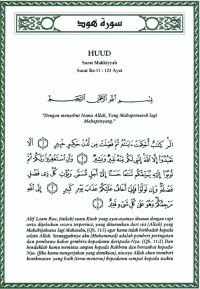 سورة هود
HUUD
Surat Makkiyyah
Surat Ke-11 : 123 Ayat
بِسْمِ اللَّهِ الرَّحْمَنِ الرَّحِيمِ
"Dengan menyebut Nama Allah, Yang Mahapemurah lagi
Mahapenyayang."
الر كِتَابٌ أُحْكِمَتْ آيَاتُهُ ثُمَّ فُصِّلَتْ مِن لَّدُنْ حَكِيمٍ خَبِيرٍ
Alif Laam Raa, (inilah) suatu Kitab yang ayat-ayatnya disusun dengan rapi
serta dijelaskan secara terperinci, yang diturunkan dari sisi (Allah) yang
Mahabijaksana lagi Mahatahu, (QS. 11:1) agar kamu tidak beribadah kepada
selain Allah. Sesungguhnya aku (Muhammad) adalah pemberi peringatan
dan pembawa kabar gembira kepadamu daripada-Nya. (QS. 11:2) Dan
hendaklah kamu meminta ampun kepada Rabbmu dan bertaubat kepada-
Nya. (Jika kamu mengerjakan yang demikian), niscaya Allah akan memberi
kenikmatan yang baik (terus-menerus) kepadamu sampai kepada waktu